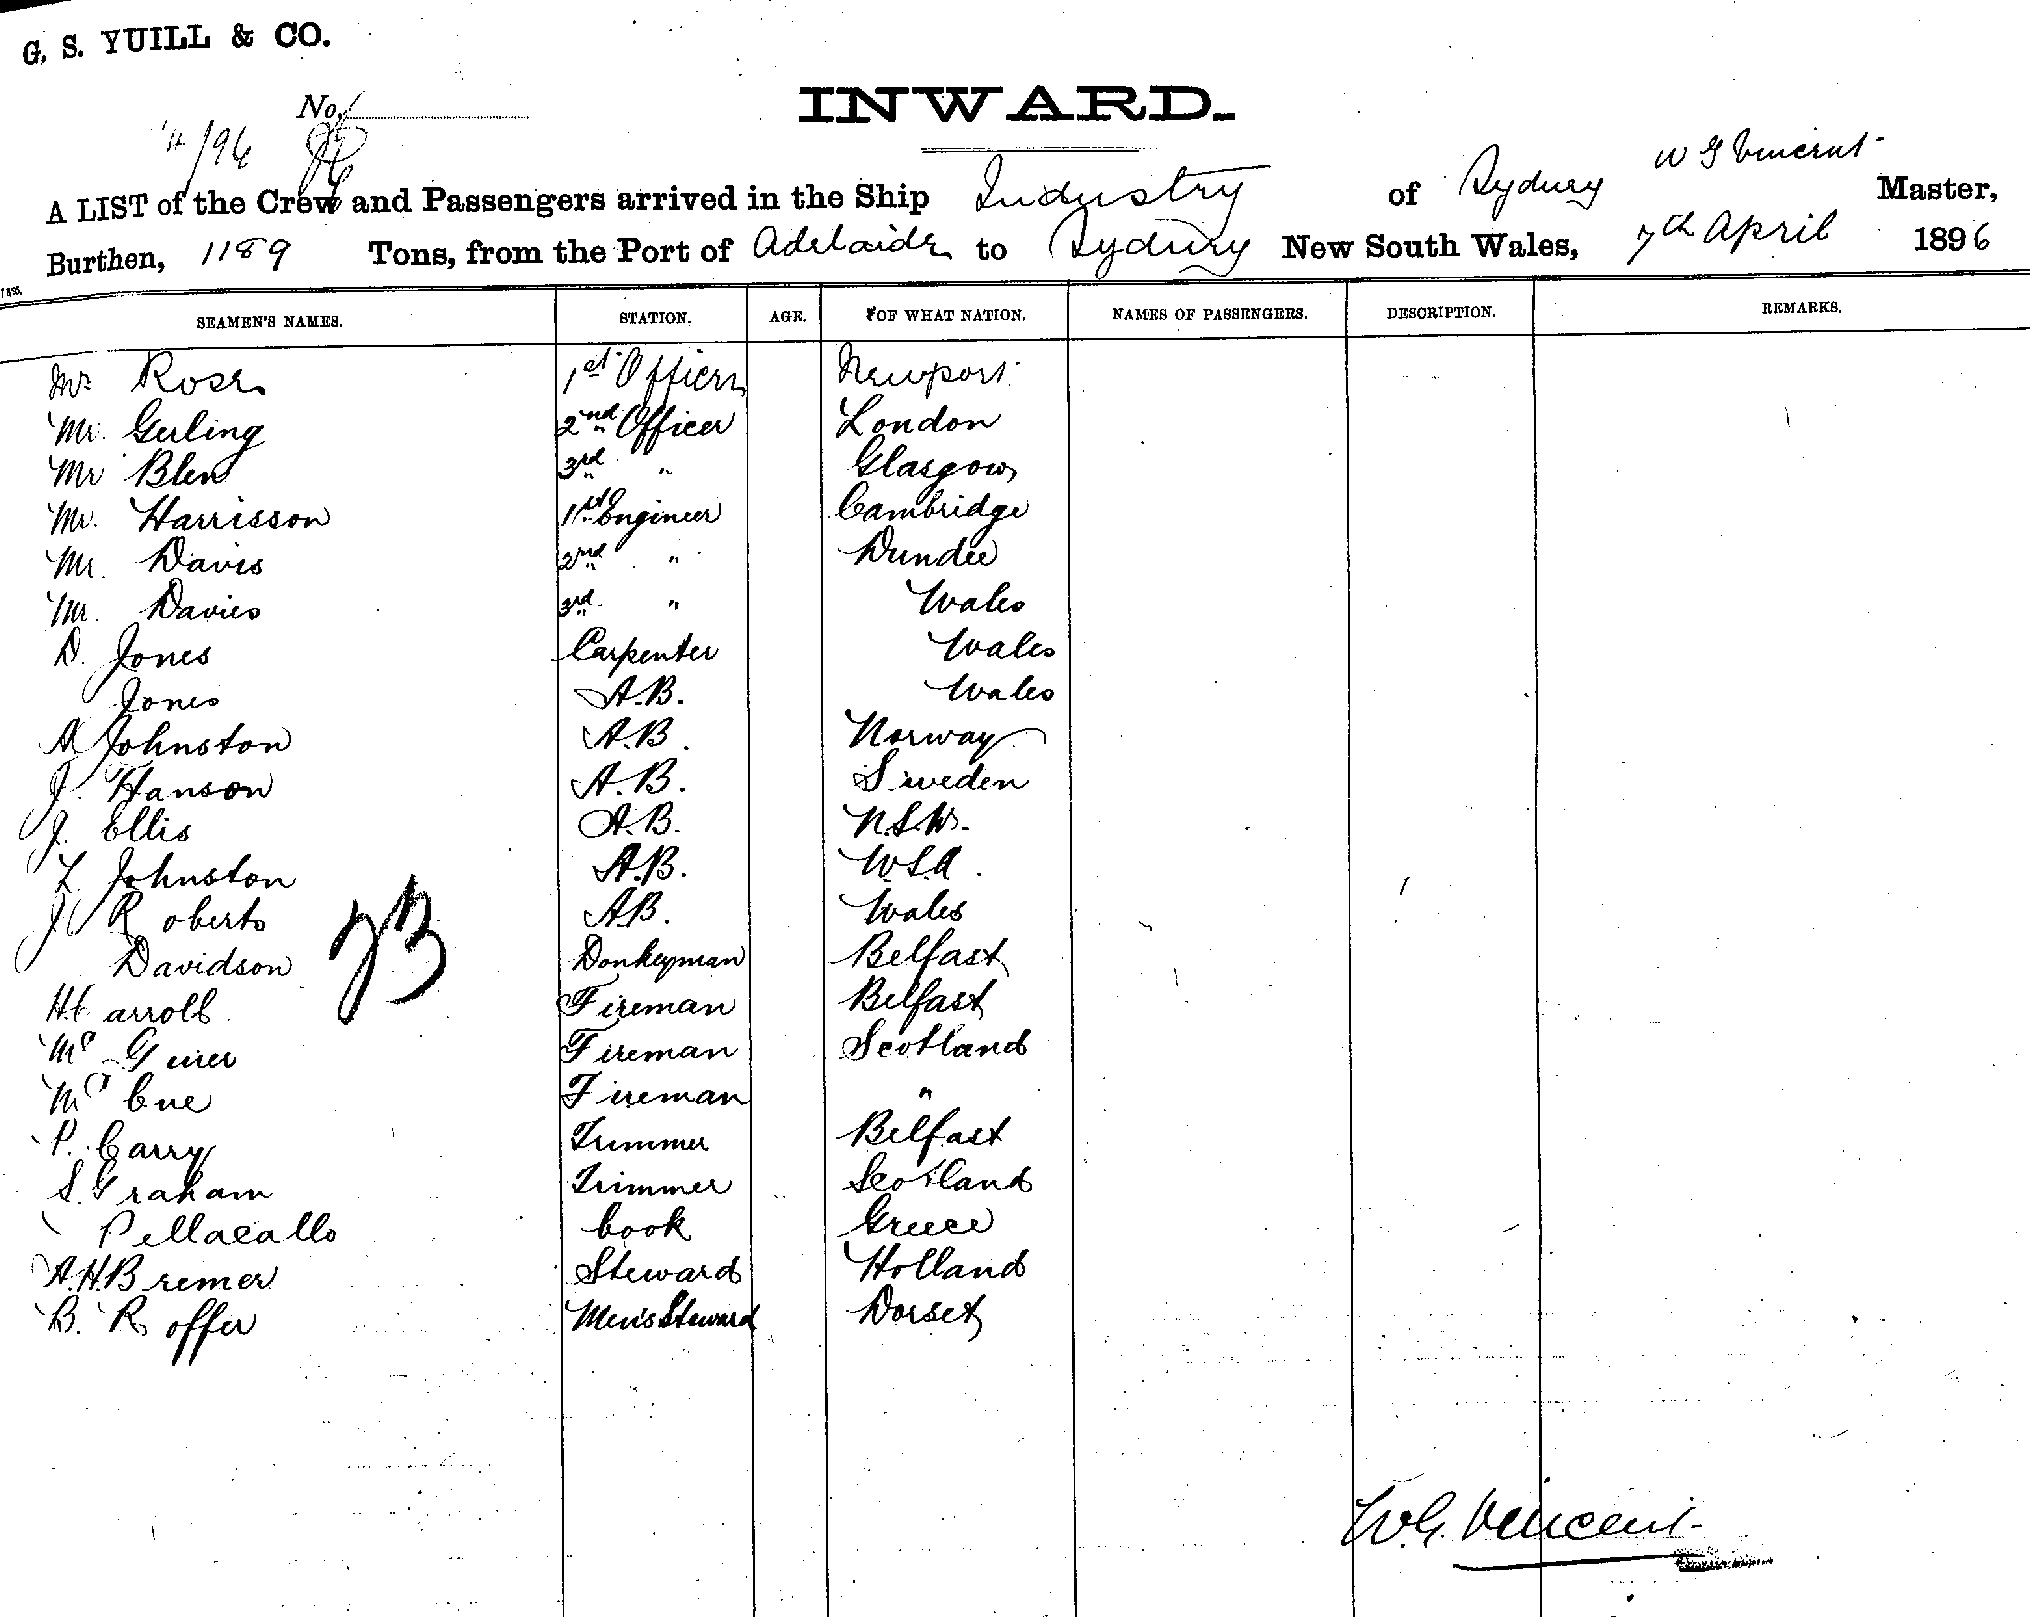 G. S. YUILL & CO.
No.
INWARD.
4/96
W G Vincent
A LIST of the Crew and Passengers arrived in the Ship Industry of Sydney Master,
Burthen, 1189 Tons, from the Port of Adelaide to Sydney New South Wales, 7th April 1896
SEAMEN'S NAMES. STATION. AGE. OF WHAT NATION. NAMES OF PASSENGERS. DESCRIPTION. REMARKS.
Mr Rose 1st Officer Newport
Mr. Gerling 2nd Officer London
Mr Blen 3rd " Glasgow
Mr. Harrisson 1st Engineer Cambridge
Mr. Davis 2nd " Dundee
Mr. Davies 3rd " Wales
D. Jones Carpenter Wales
Jones A.B. Wales
A Johnston A.B. Norway
J. Hanson A.B. Sweden
J. Ellis A.B. N.S.W.
Z. Johnston A.B. U.S.A.
J Roberts A.B. Wales
Davidson Donkeyman Belfast
H. Carroll Fireman Belfast
Mc Guier Fireman Scotland
Mc Cue Fireman "
P. Carry Trimmer Belfast
S. Graham Trimmer Scotland
Pellacallo Cook Greece
A.H. Bremer Steward Holland
B. Roffer Men's Steward Dorset
23
W.G. Vincent